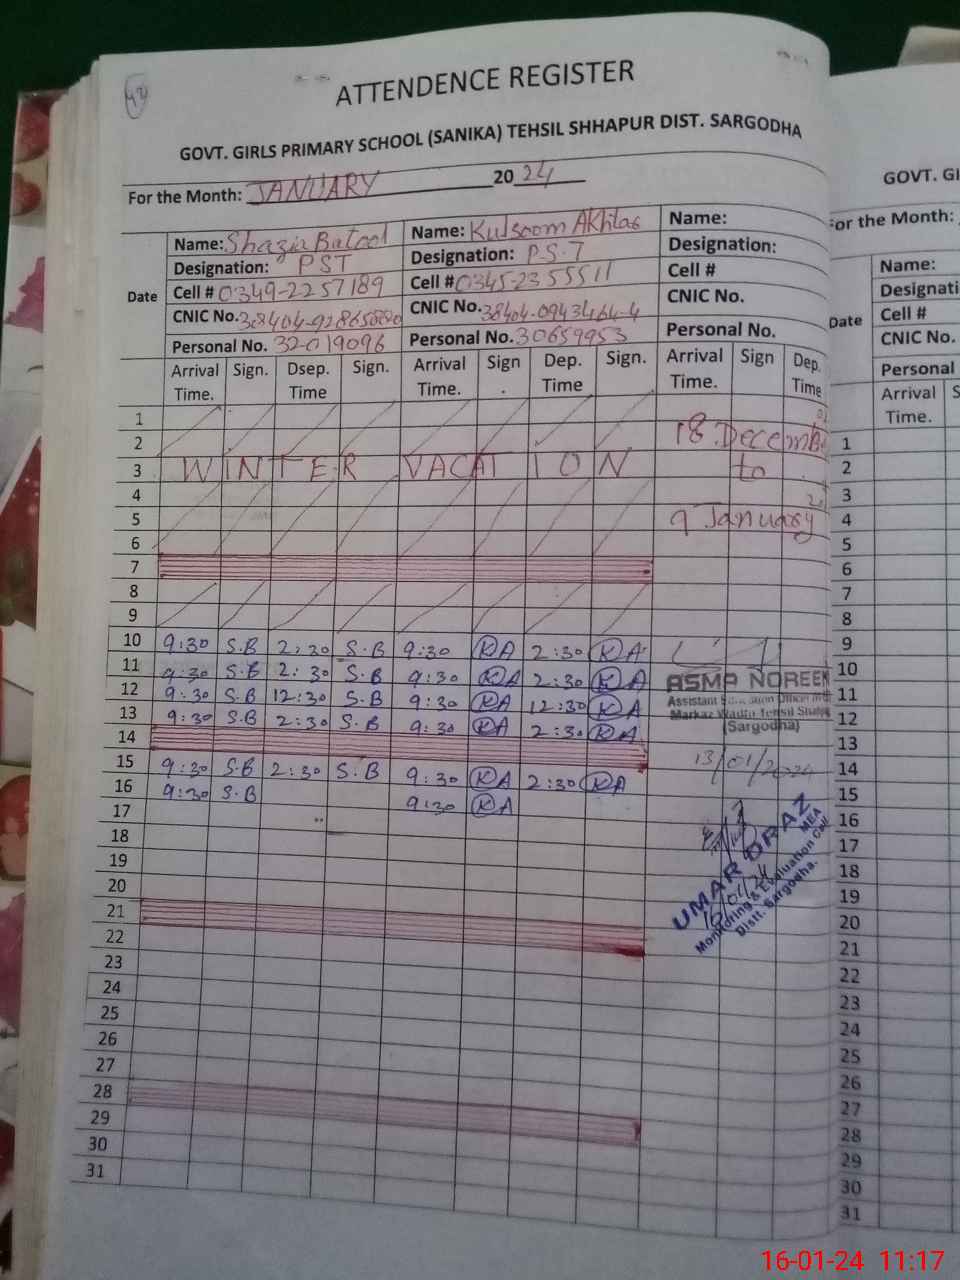 42
ATTENDENCE REGISTER
GOVT. GIRLS PRIMARY SCHOOL (SANIKA) TEHSIL SHHAPUR DIST. SARGODHA
For the Month: JANUARY 2024
Date
Name: Shazia Batool Name: Kulsoom Akhlas Name:
Designation: PST Designation: P.S.T Designation:
Cell # 0349-2257189 Cell # 0345-2355511 Cell #
CNIC No. CNIC No. 38404-0943464-4 CNIC No.
Personal No. 32-019096 Personal No. 30659953 Personal No.
Arrival Time. Sign. Dsep. Time Sign. Arrival Time. Sign . Dep. Time Sign. Arrival Time. Sign Dep. Time
1
2 18 December
3 WINTER VACATION to
4
5 9 January
6
7
8
9
10 9:30 S.B 2:30 S.B 9:30 KA 2:30 KA
11 9:30 S.B 2:30 S.B 9:30 KA 2:30 KA
12 9:30 S.B 12:30 S.B 9:30 KA 12:30 KA
13 9:30 S.B 2:30 S.B 9:30 KA 2:30 KA
14
15 9:30 S.B 2:30 S.B 9:30 KA 2:30 KA
16 9:30 S.B 9:30 KA
17
18
19
20
21
22
23
24
25
26
27
28
29
30
31
ASMA NOREEN
Assistant Education Officer
Markaz Wadhi Tehsil
(Sargodha)
13/01/2024
UMAR DRAZ
MEA
16/01/24
Monitoring & Evaluation Cell
Distt. Sargodha.
GOVT. GI
For the Month:
Date
Name:
Designati
Cell #
CNIC No.
Personal
Arrival Time.
1
2
3
4
5
6
7
8
9
10
11
12
13
14
15
16
17
18
19
20
21
22
23
24
25
26
27
28
29
30
31
16-01-24 11:17